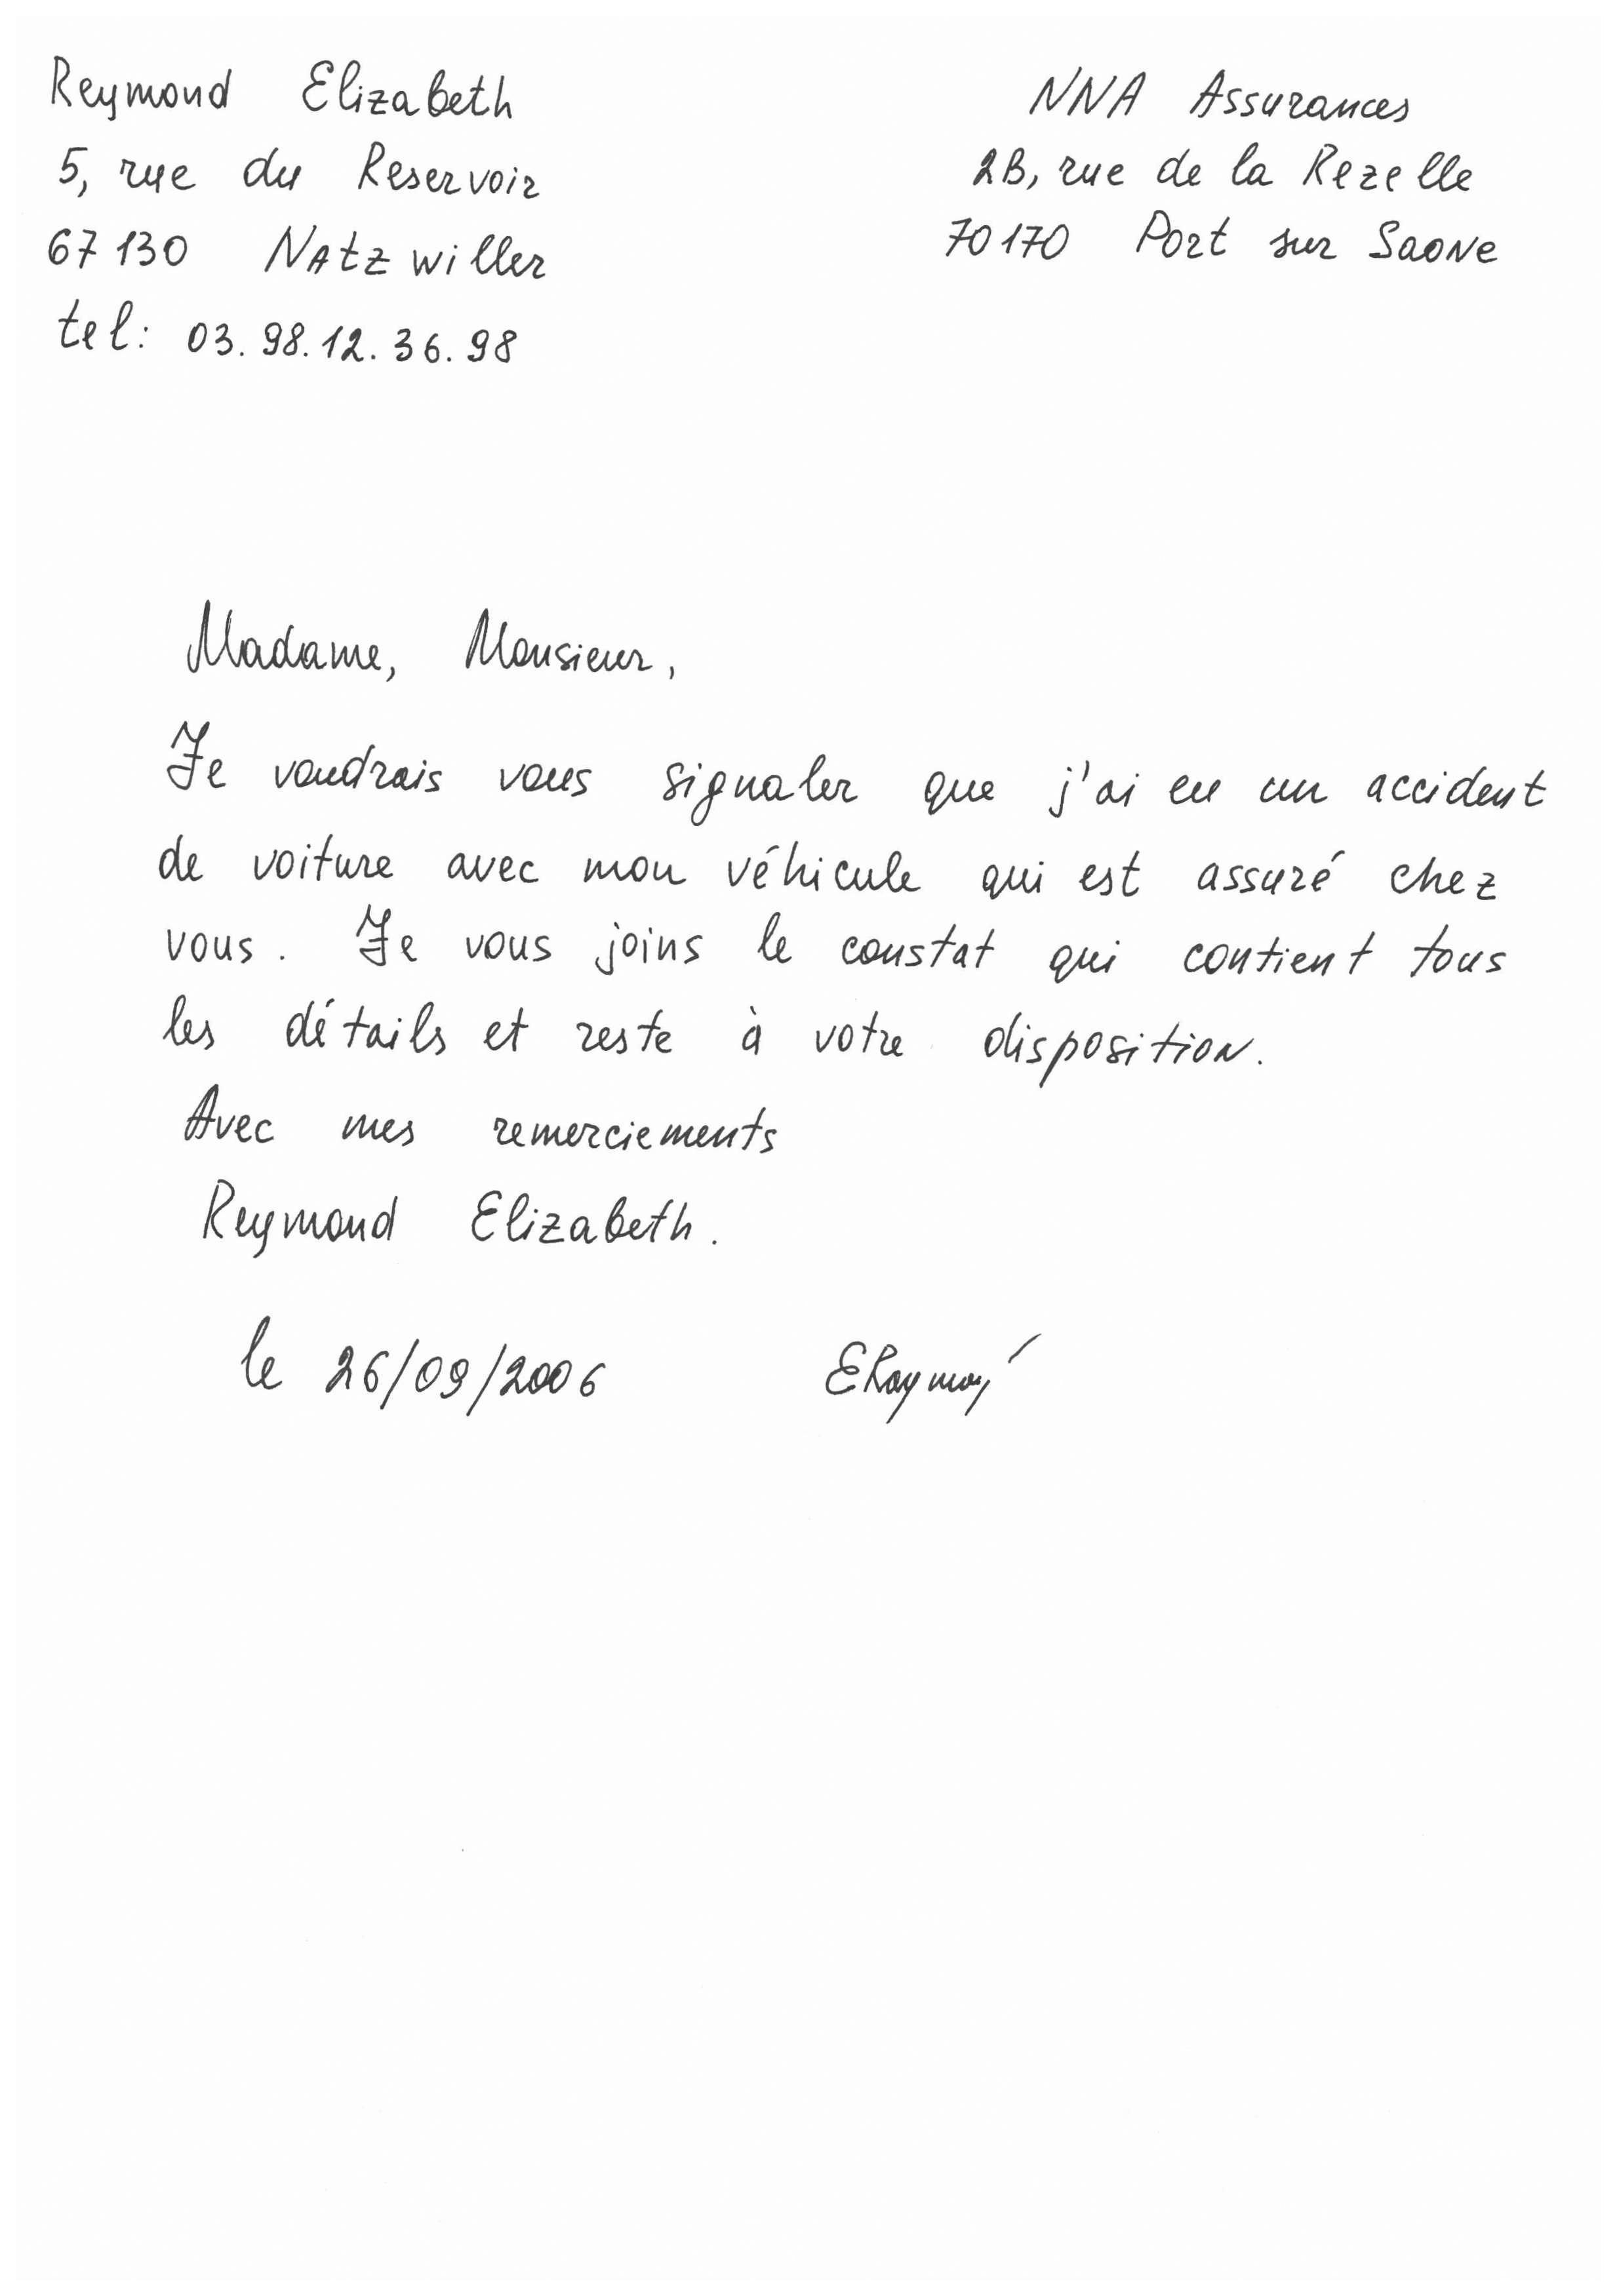 Reymond Elizabeth
5, rue du Reservoir
67130 Natzwiller
tel: 03.98.12.36.98
NNA Assurances
2B, rue de la Rezelle
70170 Port sur Saone
Madame, Monsieur,
Je voudrais vous signaler que j'ai eu un accident
de voiture avec mon véhicule qui est assuré chez
vous. Je vous joins le constat qui contient tous
les détails et reste à votre disposition.
Avec mes remerciements
Reymond Elizabeth.
le 26/09/2006